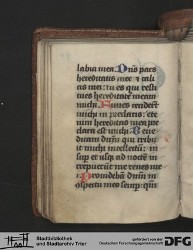 labia mea. Dñs pars
hereditatis mee et cali
cis mei: tu es qui resti
tues hereditatē meam
michi. Funes cecidert̄
michi in preclaris: ete
nim hereditas mea pre
clara est michi. Bene
dicam dn̄m qui tribu
it michi intellectū: in
sup et usqʒ ad noctē in
crepuerūt me renes mei
Prouidebam dn̄m in
Stadtbibliothek
und Stadtarchiv Trier
gefördert von der
DFG
Deutschen Forschungsgemeinschaft